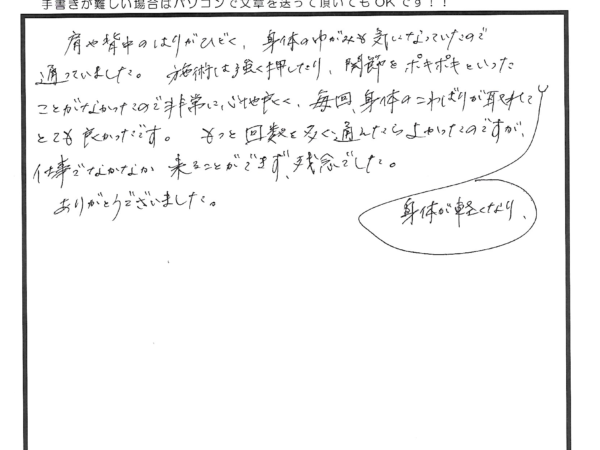 手書きが難しい場合はパソコンで文章を送って頂いてもOKです！！
肩や背中のはりがひどく、身体のゆがみも気になっていたので
通っていました。施術は強く押したり、関節をポキポキといった
ことがなかったので非常に心地良く、毎回、身体のこわばりが取れて
とても良かったです。もっと回数を多く通えたらよかったのですが、
仕事でなかなか来ることができず、残念でした。
ありがとうございました。
身体が軽くなり、